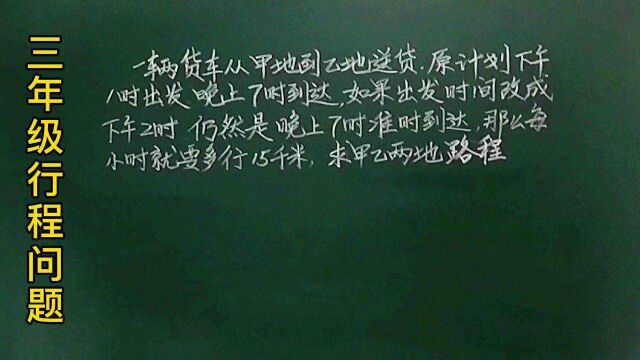 三年级行程问题
一辆货车从甲地到乙地送货.原计划下午
1时出发晚上7时到达,如果出发时间改成
下午2时 仍然是晚上7时准时到达,那么每
小时就要多行15千米,求甲乙两地路程